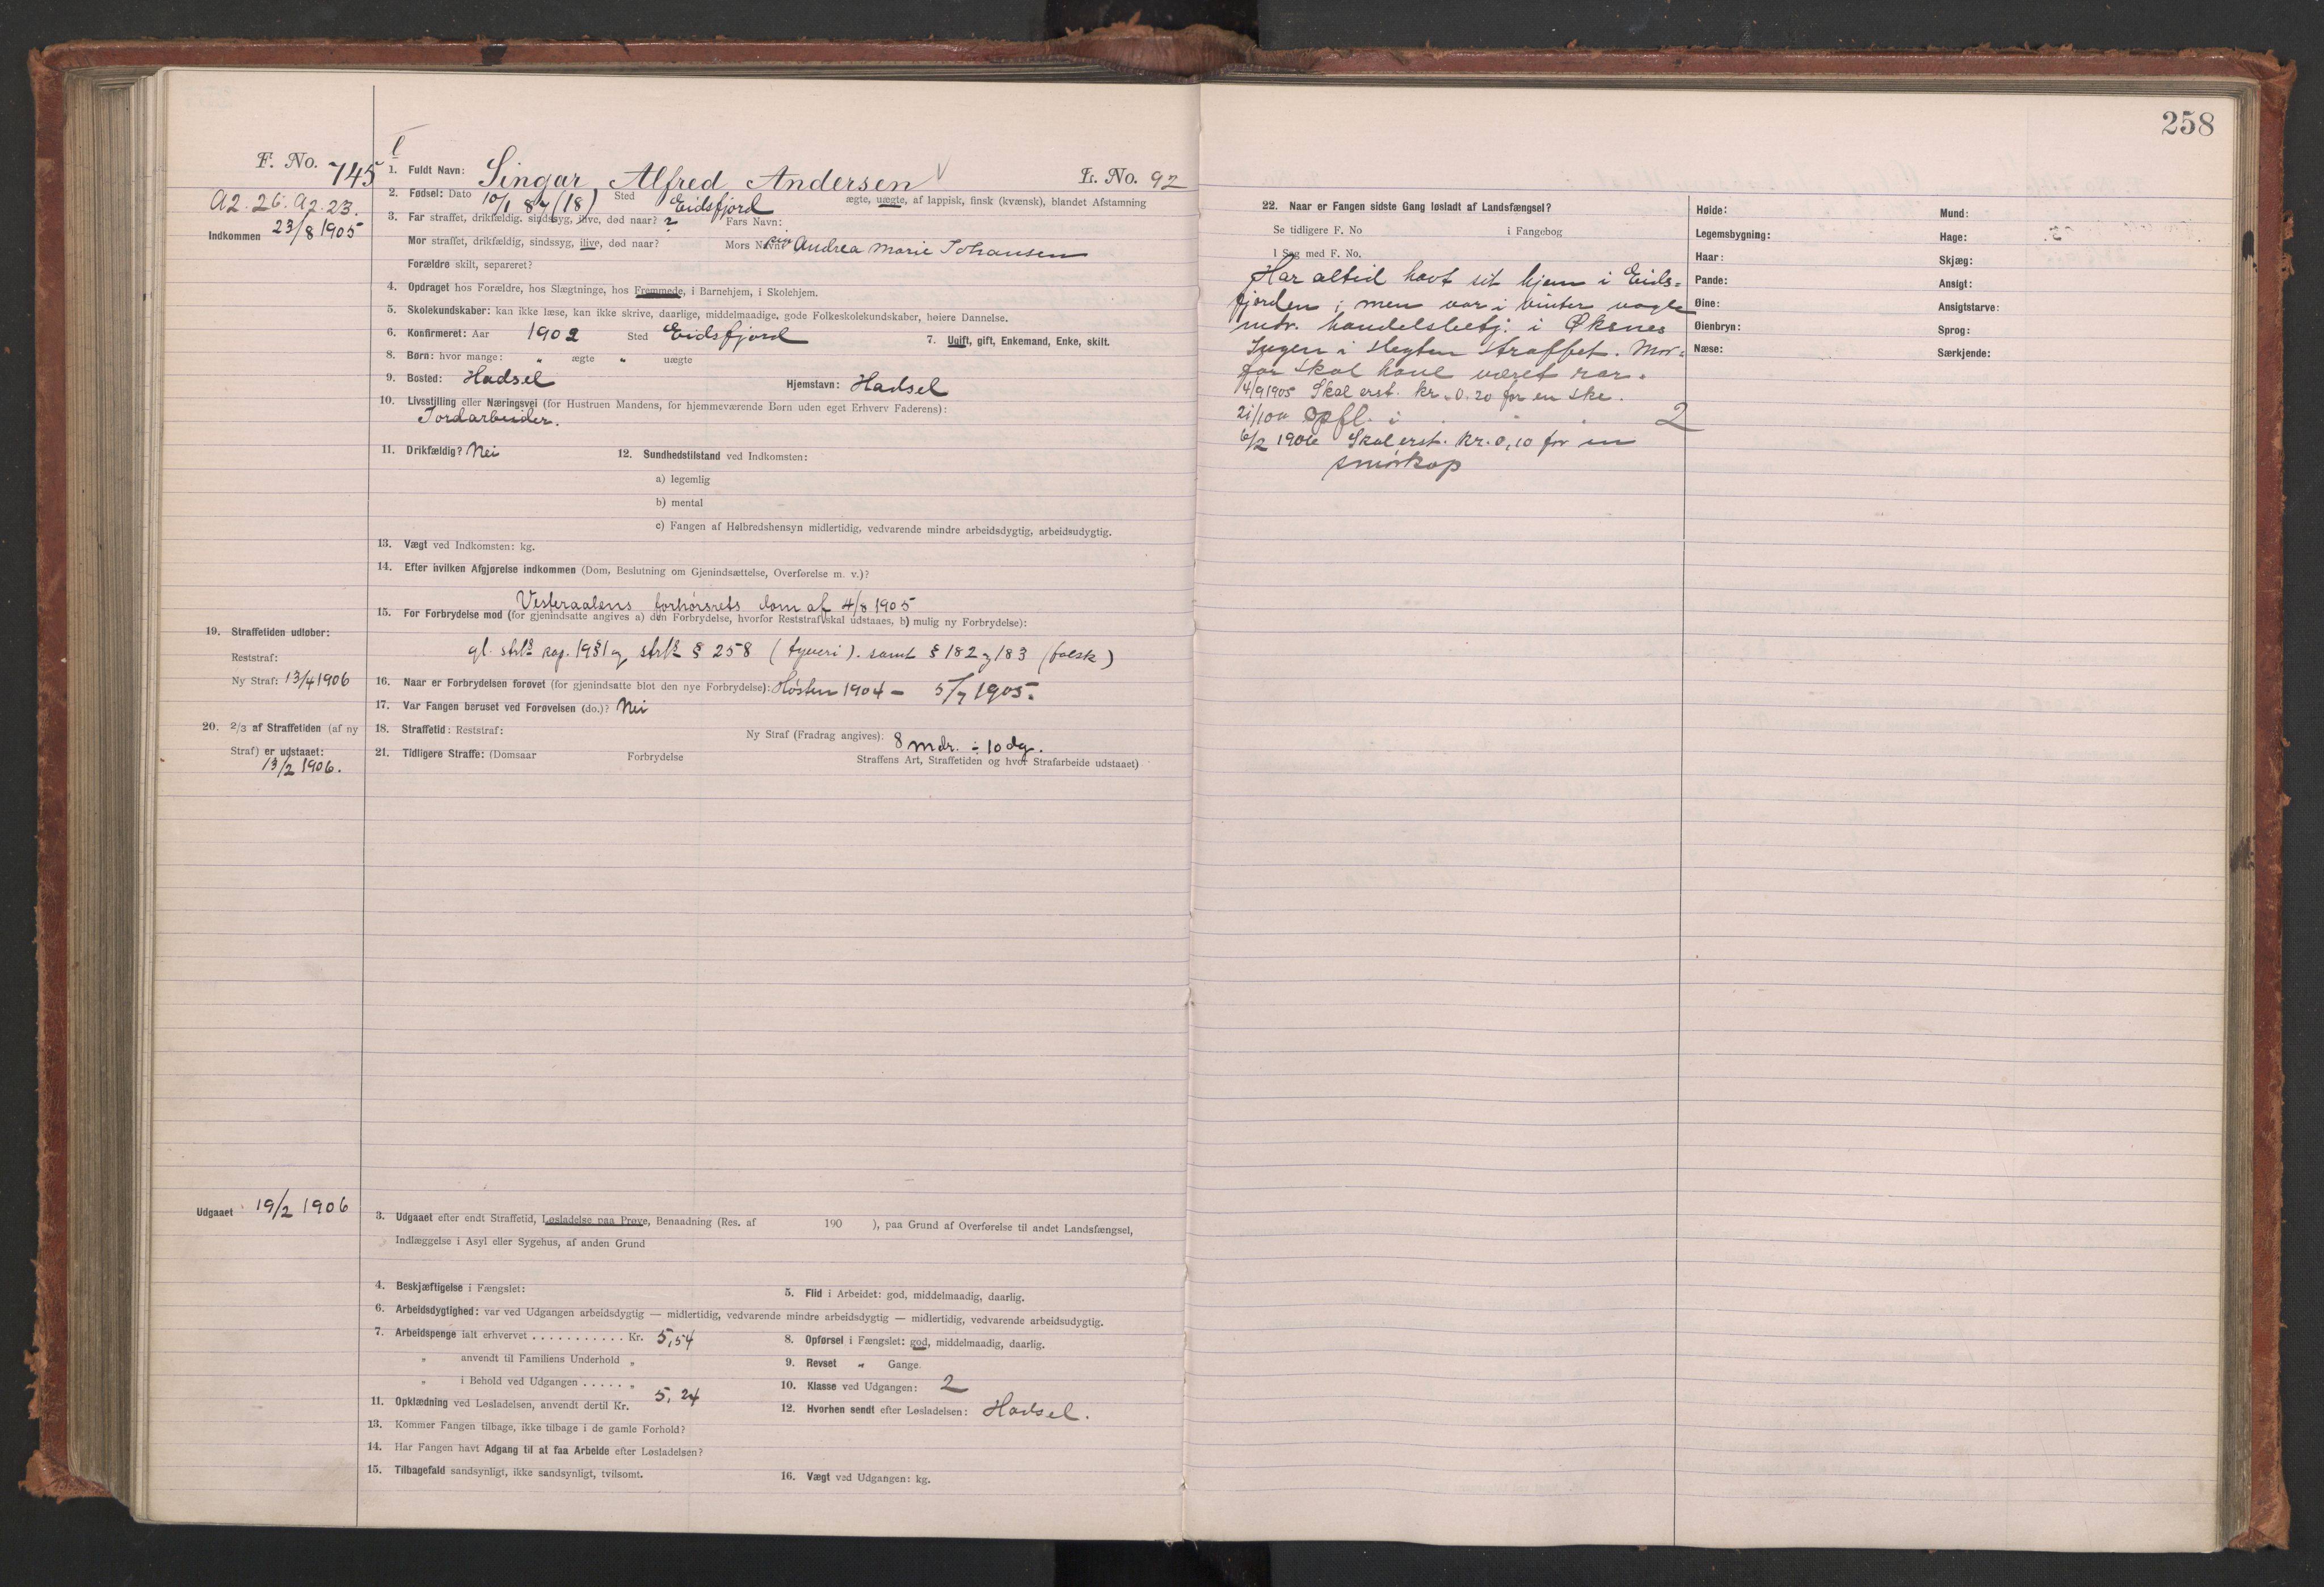 258
F. No. 745
1. Fuldt Navn: Singar Alfred Andersen L. No. 92
A2. 26. A2. 23.
2. Fødsel: Dato 10/1 87 (18) Sted Eidsfjord ægte, uægte, af lappisk, finsk (kvænsk), blandet Afstamning
Indkommen 23/8 1905
3. Far straffet, drikfældig, sindssyg, ilive, død naar? ? Fars Navn:
Mor straffet, drikfældig, sindssyg, ilive, død naar? Mors Navn: Andrea Marie Johansen
Forældre skilt, separeret?
4. Opdraget hos Forældre, hos Slægtninge, hos Fremmede, i Barnehjem, i Skolehjem.
5. Skolekundskaber: kan ikke læse, kan ikke skrive, daarlige, middelmaadige, gode Folkeskolekundskaber, høiere Dannelse.
6. Konfirmeret: Aar 1902 Sted Eidsfjord 7. Ugift, gift, Enkemand, Enke, skilt.
8. Børn: hvor mange: " ægte " uægte
9. Bosted: Hadsel Hjemstavn: Hadsel
10. Livsstilling eller Næringsvei (for Hustruen Mandens, for hjemmeværende Børn uden eget Erhverv Faderens):
Jordarbeider.
11. Drikfældig? Nei 12. Sundhedstilstand ved Indkomsten:
a) legemlig
b) mental
c) Fangen af Helbredshensyn midlertidig, vedvarende mindre arbeidsdygtig, arbeidsudygtig.
13. Vægt ved Indkomsten: kg.
14. Efter hvilken Afgjørelse indkommen (Dom, Beslutning om Gjenindsættelse, Overførelse m. v.)?
Vesteraalens forhørsrets dom af 4/8 1905
15. For Forbrydelse mod (for gjenindsatte angives a) den Forbrydelse, hvorfor Reststraf skal udstaaes, b) mulig ny Forbrydelse):
gl. strl. kap. 19 § 1 og strl. § 258 (tyveri). samt § 182 og 183 (falsk)
19. Straffetiden udløber:
Reststraf:
Ny Straf: 13/4 1906
16. Naar er Forbrydelsen forøvet (for gjenindsatte blot den nye Forbrydelse): Høsten 1904 – 5/7 1905.
17. Var Fangen beruset ved Forøvelsen (do.)? Nei
20. 2/3 af Straffetiden (af ny
Straf) er udstaaet:
13/2 1906.
18. Straffetid: Reststraf: Ny Straf (Fradrag angives): 8 mdr. ÷ 10 dg.
21. Tidligere Straffe: (Domsaar Forbrydelse Straffens Art, Straffetiden og hvor Strafarbeide udstaaet)
Udgaaet 19/2 1906
3. Udgaaet efter endt Straffetid, Løsladelse paa Prøve, Benaadning (Res. af 190 ), paa Grund af Overførelse til andet Landsfængsel,
Indlæggelse i Asyl eller Sygehus, af anden Grund
4. Beskjæftigelse i Fængslet: 5. Flid i Arbeidet: god, middelmaadig, daarlig.
6. Arbeidsdygtighed: var ved Udgangen arbeidsdygtig — midlertidig, vedvarende mindre arbeidsdygtig — midlertidig, vedvarende arbeidsudygtig.
7. Arbeidspenge ialt erhvervet . . . . . . . . . . . Kr. 5,54 8. Opførsel i Fængslet: god, middelmaadig, daarlig.
" anvendt til Familiens Underhold " 9. Revset " Gange.
" i Behold ved Udgangen . . . . . " 5,24 10. Klasse ved Udgangen: 2
11. Opklædning ved Løsladelsen, anvendt dertil Kr. 12. Hvorhen sendt efter Løsladelsen: Hadsel.
13. Kommer Fangen tilbage, ikke tilbage i de gamle Forhold?
14. Har Fangen havt Adgang til at faa Arbeide efter Løsladelsen?
15. Tilbagefald sandsynligt, ikke sandsynligt, tvilsomt. 16. Vægt ved Udgangen: kg.
22. Naar er Fangen sidste Gang løsladt af Landsfængsel?
Se tidligere F. No i Fangebog
I Sag med F. No.
Har altid havt sit hjem i Eids=
fjorden; men var i vinter nogle
mdr. handelsbetj. i Øksnes
Ingen i slegten straffet. Mor=
far skal have været rar.
4/9 1905 Skal erst. kr. 0.20 for en ske.
21/10 Opfl. i 2
6/2 1906 Skal erst. kr. 0,10 for en
smørkop
Høide: Mund:
Legemsbygning: Hage:
Haar: Skjæg:
Pande: Ansigt:
Øine: Ansigtstarve:
Øienbryn: Sprog:
Næse: Særkjende: